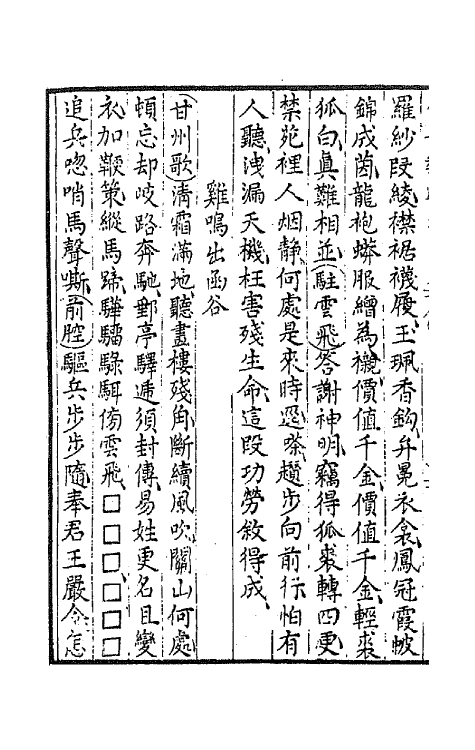 羅紗段綾襟裾襪履玉珮香鈎弁冕衣衾鳳冠霞帔
錦成茵龍袍蟒服繒為襯價值千金價值千金輕裘
狐白真難相並駐雲飛答謝神明竊得狐裘轉四更
禁苑裡人烟静何處是來時逕嗏趲步向前行怕有
人聽洩漏天機枉害殘生命這段功勞敘得成
雞鳴出函谷
甘州歌清霜滿地聽畫樓殘角斷續風吹關山何處
頓忘却岐路奔馳郵亭驛遞須封傳易姓更名且變
衣加鞭策縱馬蹄驊騮騄駬傍雲飛□□□□□□
追兵唿哨馬聲嘶前腔驅兵步步隨奉君王嚴令怎